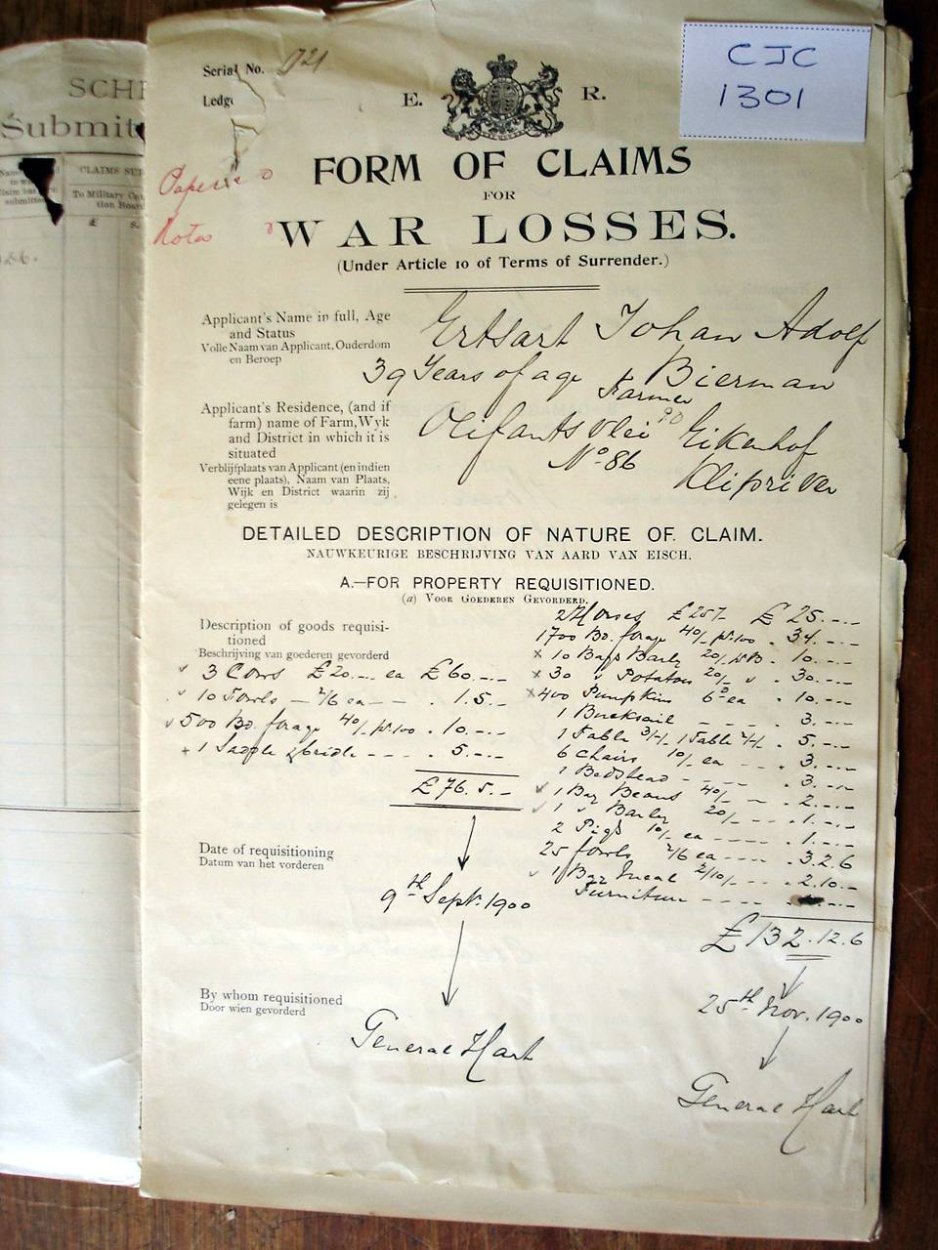 SCH
Submit
CLAIMS SU
To Military
tion Boar
£ s.
CJC
1301
Serial No. 1721
Ledg
E. R.
Papers
Notes
FORM OF CLAIMS
FOR
WAR LOSSES.
(Under Article 10 of Terms of Surrender.)
Applicant's Name in full, Age
and Status
Volle Naam van Applicant, Ouderdom
en Beroep
Johan Adolf
Bierman
39 Years of age Farmer
Applicant's Residence, (and if
farm) name of Farm, Wyk
and District in which it is
situated
Verblijfplaats van Applicant (en indien
eene plaats), Naam van Plaats,
Wijk en District waarin zij
gelegen is
Olifantsvlei PO Eikenhof
No. 86 Kliprivier
DETAILED DESCRIPTION OF NATURE OF CLAIM.
NAUWKEURIGE BESCHRIJVING VAN AARD VAN EISCH.
A.—FOR PROPERTY REQUISITIONED.
(a) VOOR GOEDEREN GEVORDERD.
Description of goods requisi-
tioned
Beschrijving van goederen gevorderd
3 Cows £20.-.- ea £60.-.-
10 Fowls - 2/6 ea - - . 1.5.-
500 Bd. forage 40/- pr. 100 . 10.-.-
1 Saddle & bridle - - - . 5.-.-
£76.5.-
2 Horses £25/- £25.-.-
1700 Bd. forage 40/- pr. 100 . 34.-.-
10 Bags Barly 20/- pr B. . 10.-.-
30 " Potatoes 20/- " . 30.-.-
400 Pumpkins 6d ea . 10.-.-
1 Bucksail - - - - . 3.-.-
1 Table 1 Table . 5.-.-
6 Chairs 10/- ea - - . 3.-.-
1 Bedstead - - - - . 3.-.-
1 Bag Beans 40/- - - . 2.-.-
1 " Barley 20/- - - . 1.-.-
2 Pigs 10/- ea - - - . 1.-.-
25 fowls 2/6 ea - - - . 3.2.6
1 Bag Meal 2/10/- - - . 2.10.-
Furniture - - - -
£132.12.6
Date of requisitioning
Datum van het vorderen
9th Sept. 1900
25th Nov. 1900
By whom requisitioned
Door wien gevorderd
General Hart
General Hart